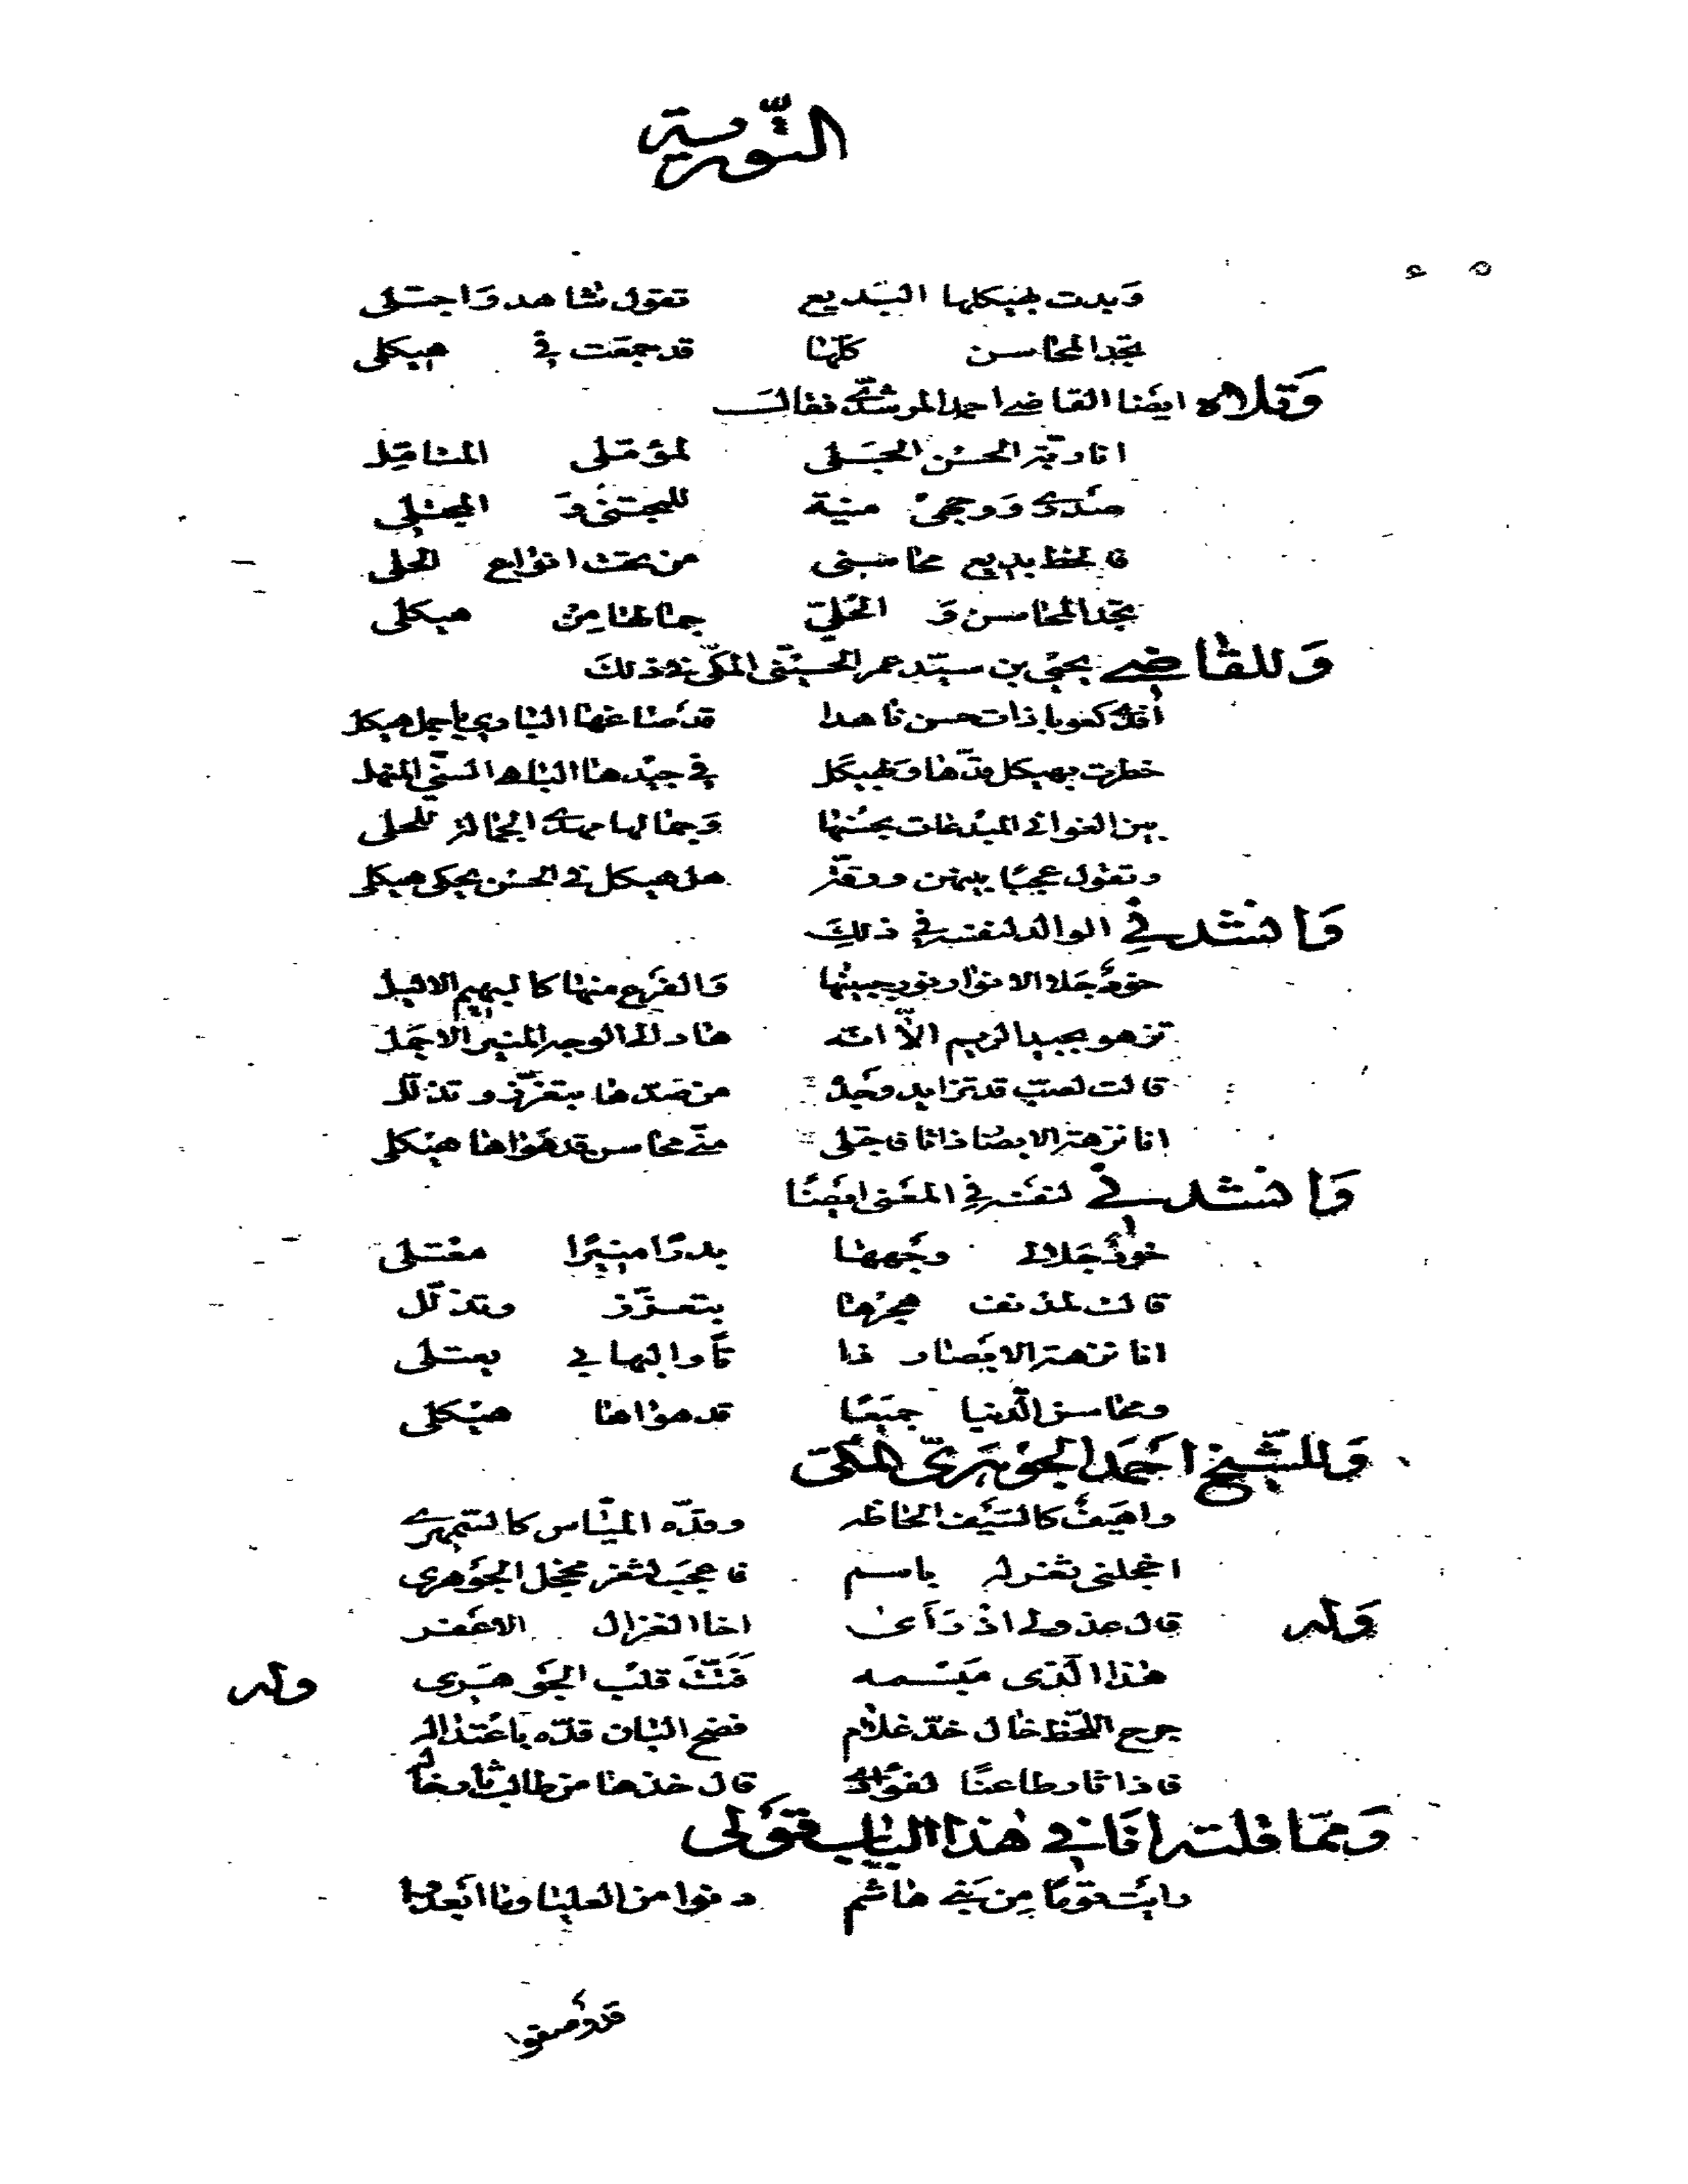 التورية
وبدت بهيكلها البديع تقول شاهد واجتلى
تجد المحاسن كلها قد جمعت في هيكلى
وتلاه ايضا القاضى احمد المرشدى فقال
انا درّة الحسن الجلى لمؤملى المتامّل
صدرى ووجهى منية للمجتنى و المجتلى
فالحظ بديع محاسنى من تحت انواع الحلى
تجد المحاسن و الحلى جمالها من هيكلى
وللقاضى يحيى بن سيّد عمر الحسينى المكّى في ذلك
افدى كعوبا ذات حسن ناهدا قد صاغها البارى باجمل هيكل
خطرت بهيكل قدّها وبهيكل في جيدها الباهى السنّي
بين الغوانى المبدعات بحسنها وجمالها يهدى الجمال للحلى
وتقول عجبًا بينهن ورقة هل هيكل في الحسن يحكى هيكلى
وانشدني الوالد لنفسه في ذلك
خود جلا الانوار نور جبينها والفرع منها كالبهيم الاليل
تزهو بجيد الريم الّا انه هاد الى الوجه المنير الاجمل
قالت لصبّ قد تزايد وجد من صدّها بتعزّز وتذلّل
انا نزهة الابصار ذاتا فاجتلى منّى محاسن قد هواها هيكلى
وانشدني لنفسه في المعنى ايضًا
خود جلالى وجهها بدرًا منيرًا معتلى
قالت لمدنف هجرها بتعزّز وتذلّل
انا نزهة الابصار ذا تًا والبها بى يعتلى
ومحاسن الدنيا جميعًا قد هواها هيكلى
وللشيخ احمد الجوهريّ المكّى
واهيف كالسيف الحاظه وقدّه الميّاس كالسمهرى
اخجلنى ثغر له باسم فاعجب لثغر مخجل الجوهرى
وله قال عذولى اذ رأى اخا الغزال الاعفر
هذا الّذى مبسمه فتّت قلب الجوهرى وله
جرح اللحظ خال خدّ غلام فضح البان قدّه باعتداله
فاذا ثار طاعنًا لفؤادى قال خذها من طالب ثار خاله
وممّا قلته انا في هذا الباب قولى
رايت قومًا من بنى هاشم دنوا من العليا وما ابعدوا
قد وصفوا